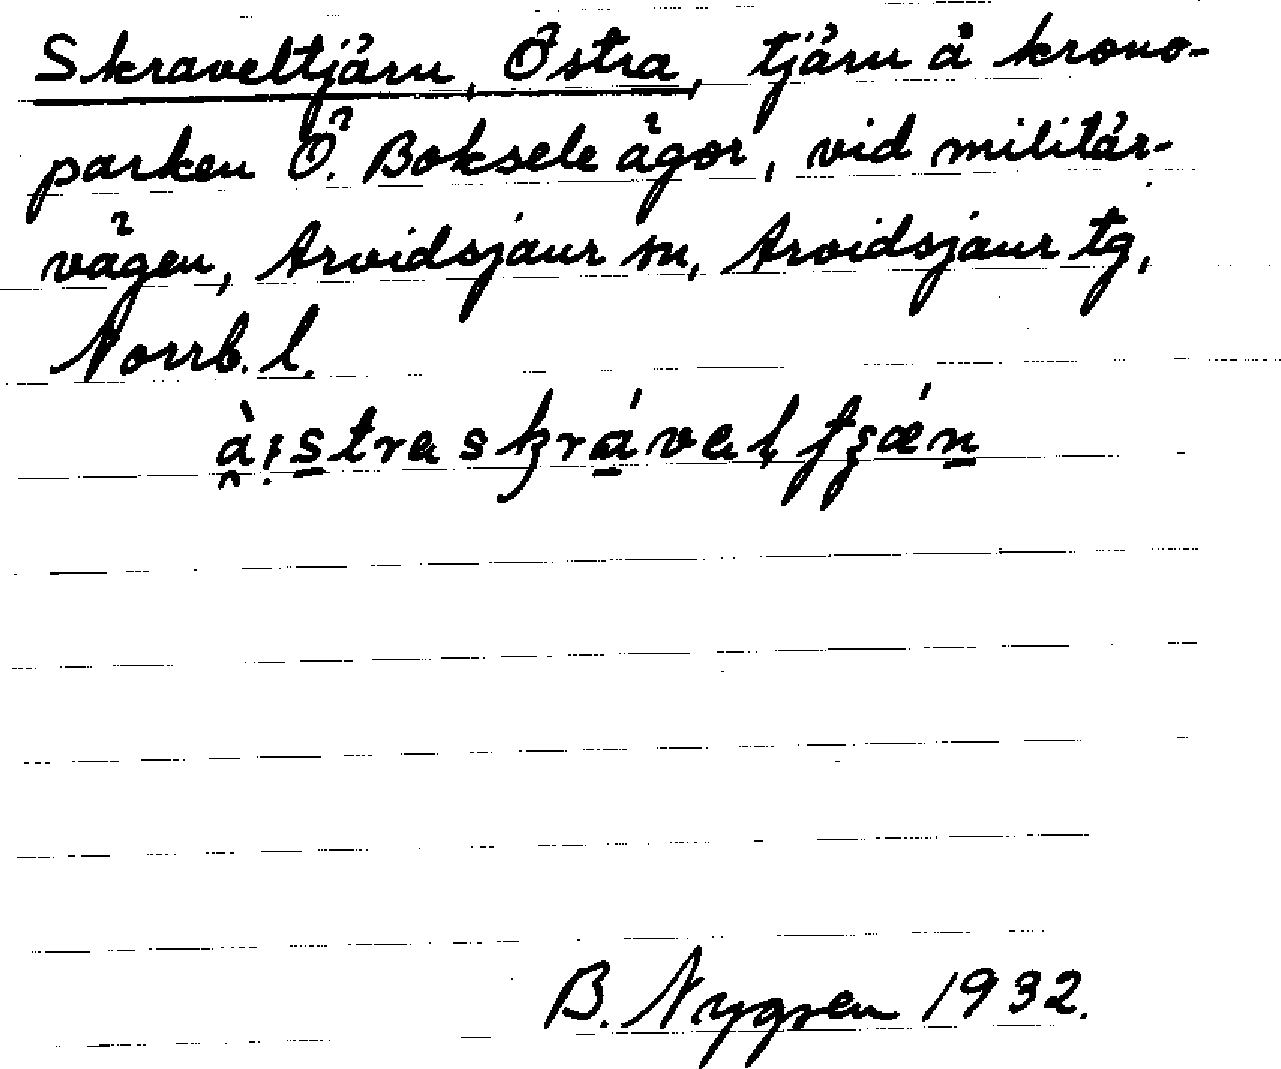 Skraveltjärn, Östra, tjärn å krono-
parken Ö. Boksele ägor, vid militär-
vägen, Arvidsjaur sn, Arvidsjaur tg,
Norrb. l.
B. Nygren 1932.